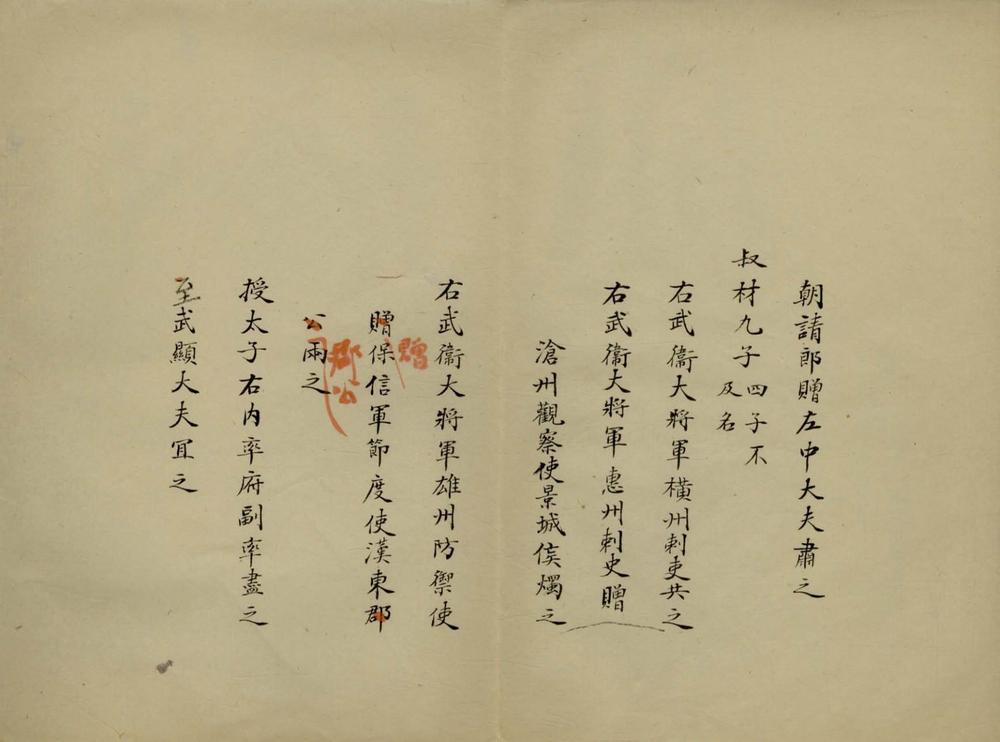 朝請郎贈左中大夫肅之
叔材九子四子不
及名
右武衞大將軍橫州刺吏共之
右武衞大將軍惠州刺史贈
滄州觀察使景城侯燭之
右武衞大將軍雄州防禦使
贈
贈保信軍節度使漢東郡
郡公
公兩之
授太子右内率府副率盡之
至武顯大夫宜之